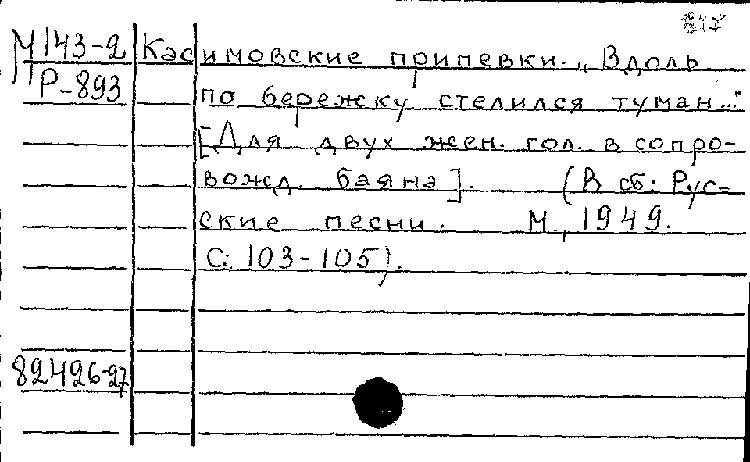 М 143-2 Касимовские припевки. „Вдоль
Р-893 по бережку стелился туман..."
[Для двух жен. гол. в сопро-
вожд. баяна]. (В сб: Рус-
ские песни. М, 1949.
С. 103-105).
82426-27